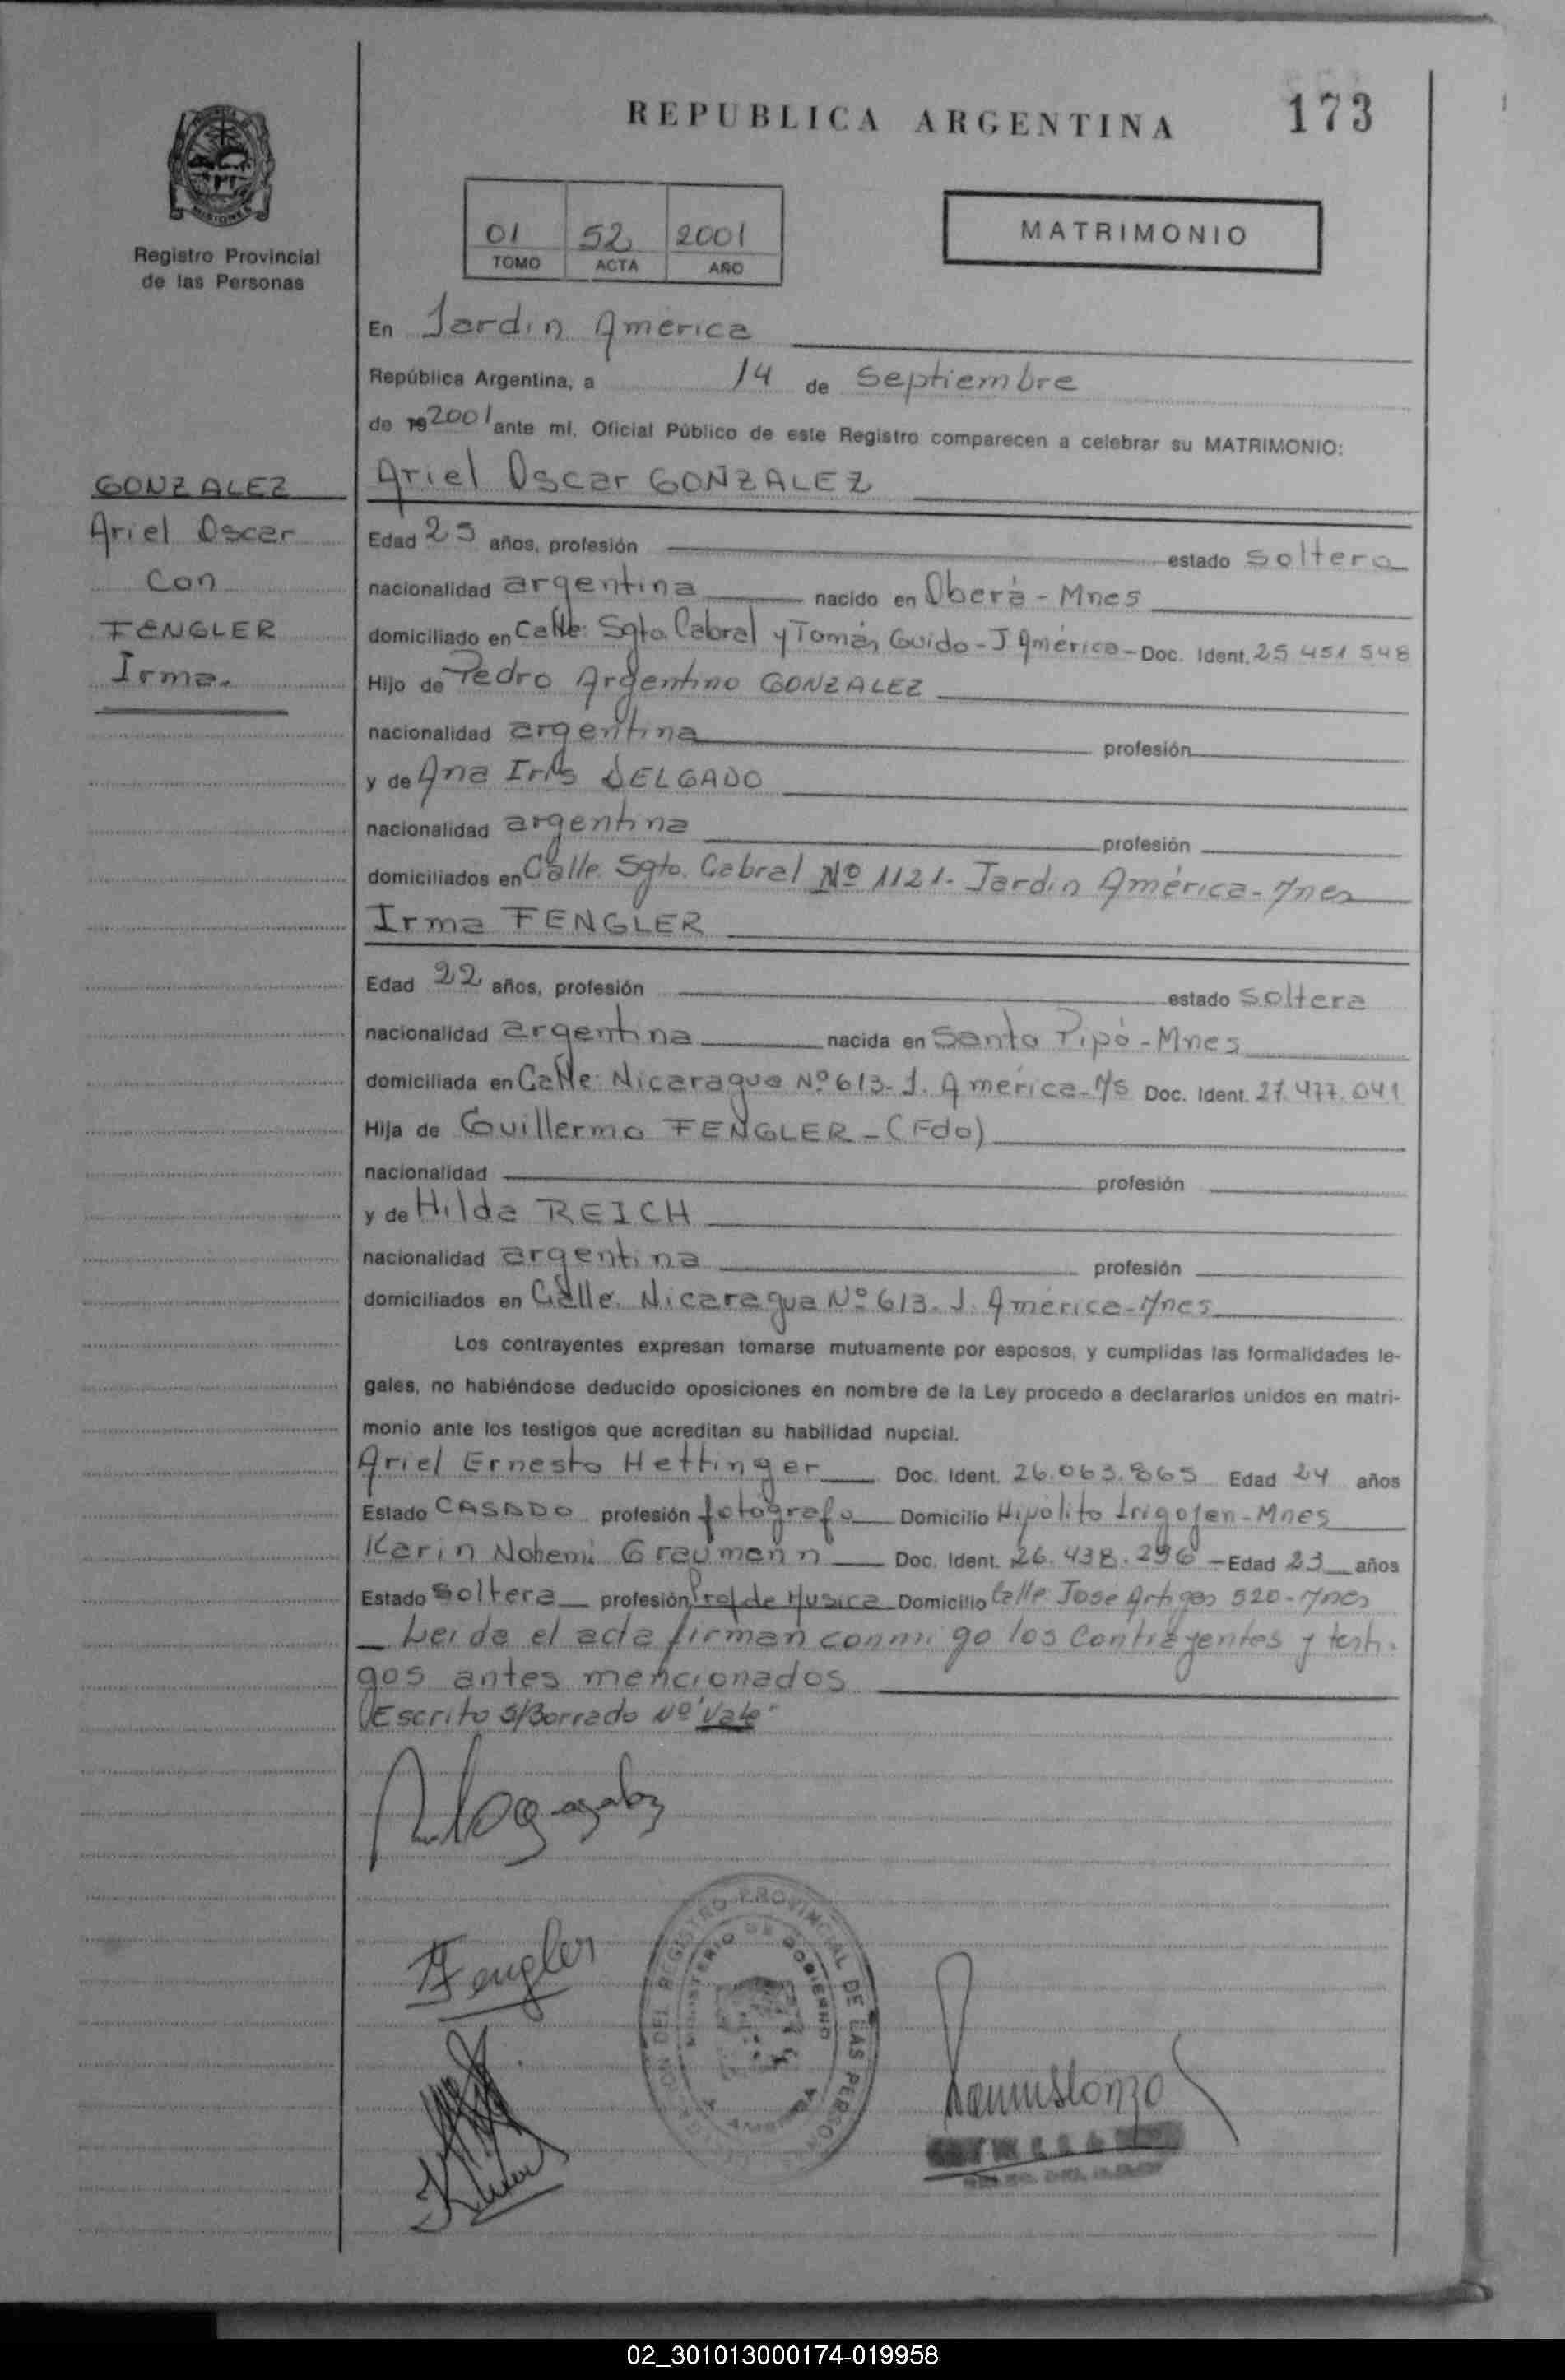 REPUBLICA ARGENTINA
173
MISIONES
Registro Provincial
de las Personas
01 52 2001
TOMO ACTA AÑO
MATRIMONIO
En Jardin América
República Argentina, a 14 de Septiembre
de 19 2001 ante mí, Oficial Público de este Registro comparecen a celebrar su MATRIMONIO:
GONZALEZ
Ariel Oscar
Con
FENGLER
Irma.
Ariel Oscar GONZALEZ
Edad 25 años, profesión estado soltero
nacionalidad argentina nacido en Oberá - Mnes
domiciliado en Calle: Sgto. Cabral y Tomás Guido - J América - Doc. Ident. 25 451 548
Hijo de Pedro Argentino GONZALEZ
nacionalidad argentina profesión
y de Ana Iris DELGADO
nacionalidad argentina profesión
domiciliados en Calle. Sgto. Cabral Nº 1121. Jardin América - Mnes
Irma FENGLER
Edad 22 años, profesión estado soltera
nacionalidad argentina nacida en Santo Pipó - Mnes
domiciliada en Calle: Nicaragua Nº 613 - J. América - M/s Doc. Ident. 27.477.041
Hija de Guillermo FENGLER - (Fdo)
nacionalidad profesión
y de Hilda REICH
nacionalidad argentina profesión
domiciliados en Calle. Nicaragua Nº 613. J. América - Mnes
Los contrayentes expresan tomarse mutuamente por esposos, y cumplidas las formalidades le-
gales, no habiéndose deducido oposiciones en nombre de la Ley procedo a declararlos unidos en matri-
monio ante los testigos que acreditan su habilidad nupcial.
Ariel Ernesto Hettinger Doc. Ident. 26.063.865 Edad 24 años
Estado CASADO profesión fotógrafo Domicilio Hipólito Irigoyen - Mnes
Karin Nohemi Graumann Doc. Ident. 26.438.296 - Edad 23 años
Estado Soltera profesión Prof de Musica Domicilio Calle Jose Artigas 520 - Mnes
Leida el acta firman conmigo los Contrayentes y testi-
gos antes mencionados
Escrito s/Borrado Nº "Vale"
Fengler
REGISTRO PROVINCIAL DE LAS PERSONAS
MINISTERIO DE GOBIERNO
02_301013000174-019958